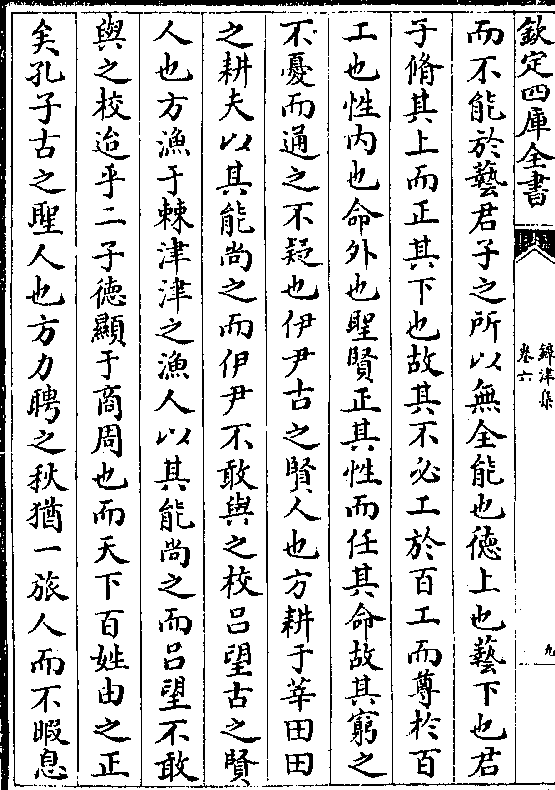 欽定四庫全書
鐔津集
卷六
九
而不能於藝君子之所以無全能也徳上也藝下也君
子脩其上而正其下也故其不必工於百工而尊於百
工也性内也命外也聖賢正其性而任其命故其窮之
不憂而通之不疑也伊尹古之賢人也方耕于莘田田
之耕夫以其能尚之而伊尹不敢與之校吕望古之賢
人也方漁于棘津津之漁人以其能尚之而吕望不敢
與之校迨乎二子徳顯于商周也而天下百姓由之正
矣孔子古之聖人也方力聘之秋猶一旅人而不暇息